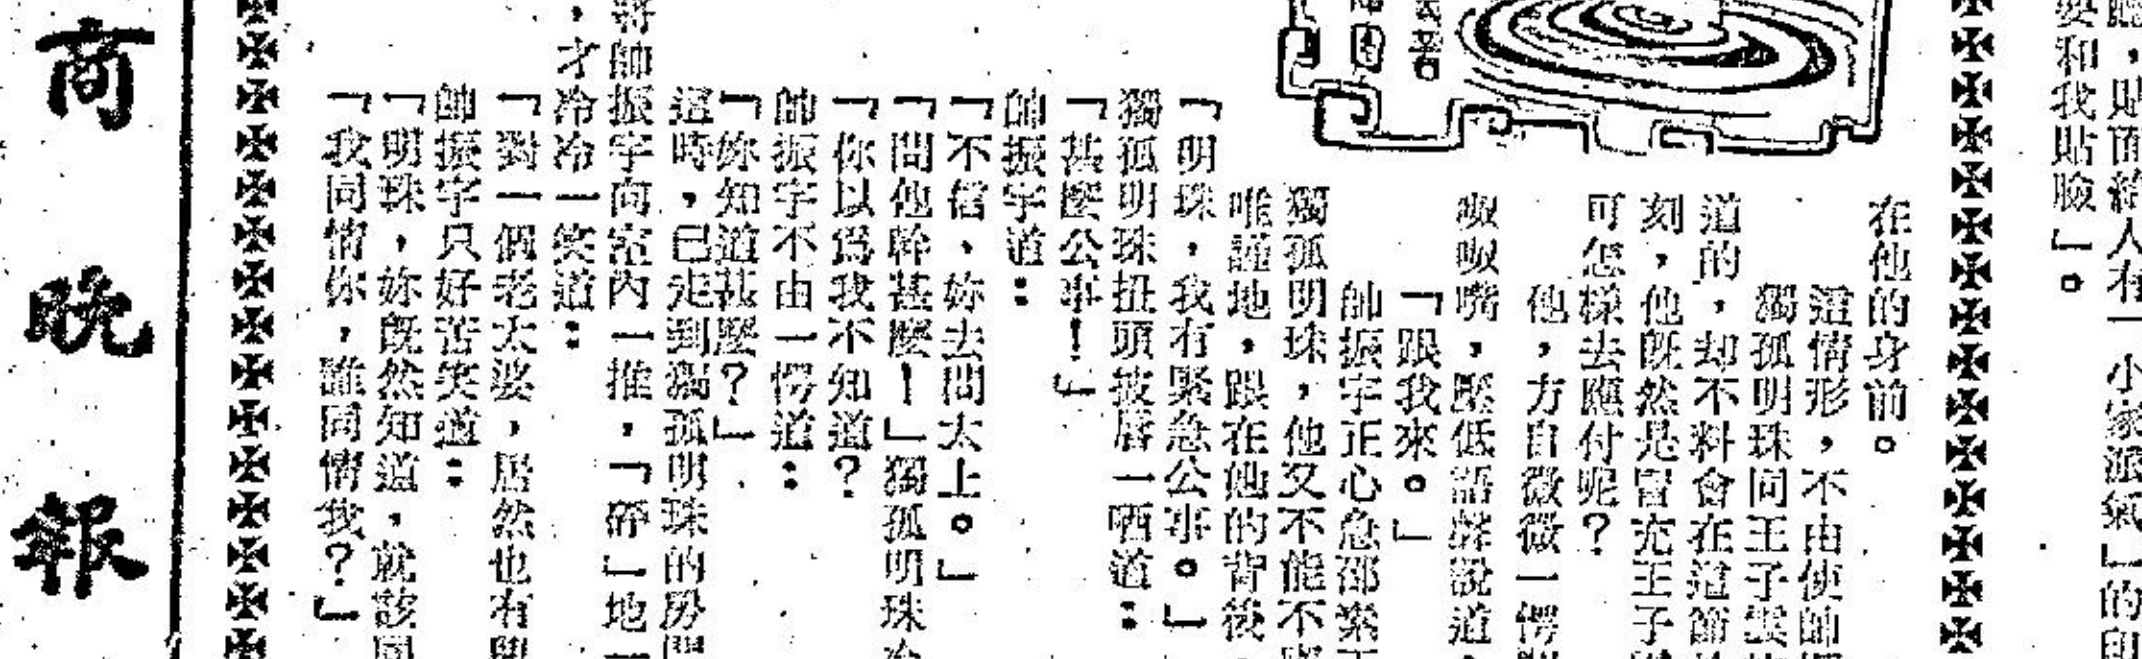 臉,貼面給人有一小家派氣」的印
要和我貼臉」。
在他的身前。
這情形,不由使帥振
獨孤明珠同王子雲
道的,却不料會在這節
刻,他既然是冒充王子
可怎樣去應付呢?
他,方自微微一愕
呶呶嘴,壓低語聲說道
「跟我來。」
帥振宇正心急邵紫
獨孤明珠,他又不能不
唯謹地,跟在她的背後
「明珠,我有緊急公事。」
獨孤明珠扭頭披唇一哂道:
「甚麼公事!」
帥振宇道:
「不信,妳去問太上。」
「問他幹甚麼!」獨孤明珠冷
「你以爲我不知道?
帥振宇不由一愕道:
「妳知道甚麼?」
這時,已走到獨孤明珠的房門
將帥振宇向室內一推,「砰」地一
,才冷冷一笑道:
「對一個老太婆,居然也有興
帥振宇只好苦笑道:
「明珠,妳既然知道,就該同
「我同情你,誰同情我?」
商晚報